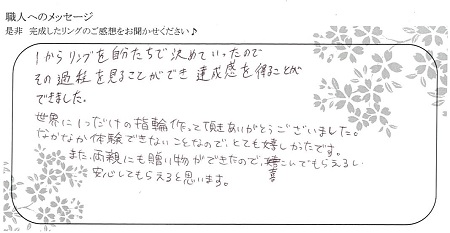 職人へのメッセージ
是非 完成したリングのご感想をお聞かせください♪
1からリングを自分たちで決めていったので
その過程を見ることができ達成感を得ることが
できました。
世界に1つだけの指輪作って頂きありがとうございました。
なかなか体験できないことなので、とても嬉しかったです。
また、両親にも贈り物ができたので、喜こんでもらえるし
安心してもらえると思います。